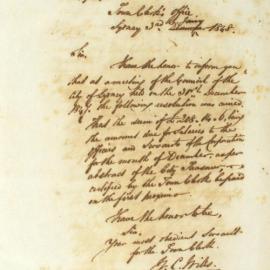 Town Clerk's Office
Sydney 3rd Jany 1848.
Sir,
I have the honor to inform you
that at a meeting of the Council of the
City of Sydney held on the 30th December
the following resolution was
"That the sum of £208. 14. 6, being
the amount due for Salaries to the
Officers and Servants of the Corporation
for the month of December, as per
abstract of the City Treasurer
certified by the Town Clerk be paid
on the first proximo.
I have the honor to be,
Sir,
Your most obedient Servant
for the Town Clerk